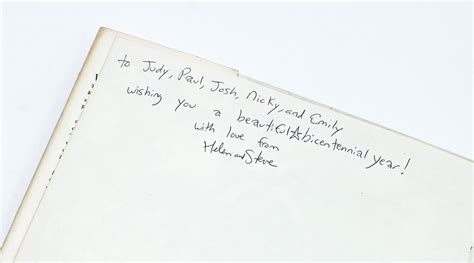 to Judy, Paul, Josh, Nicky, and Emily
wishing you a beautiful bicentennial year!
with love from
Helen and Steve